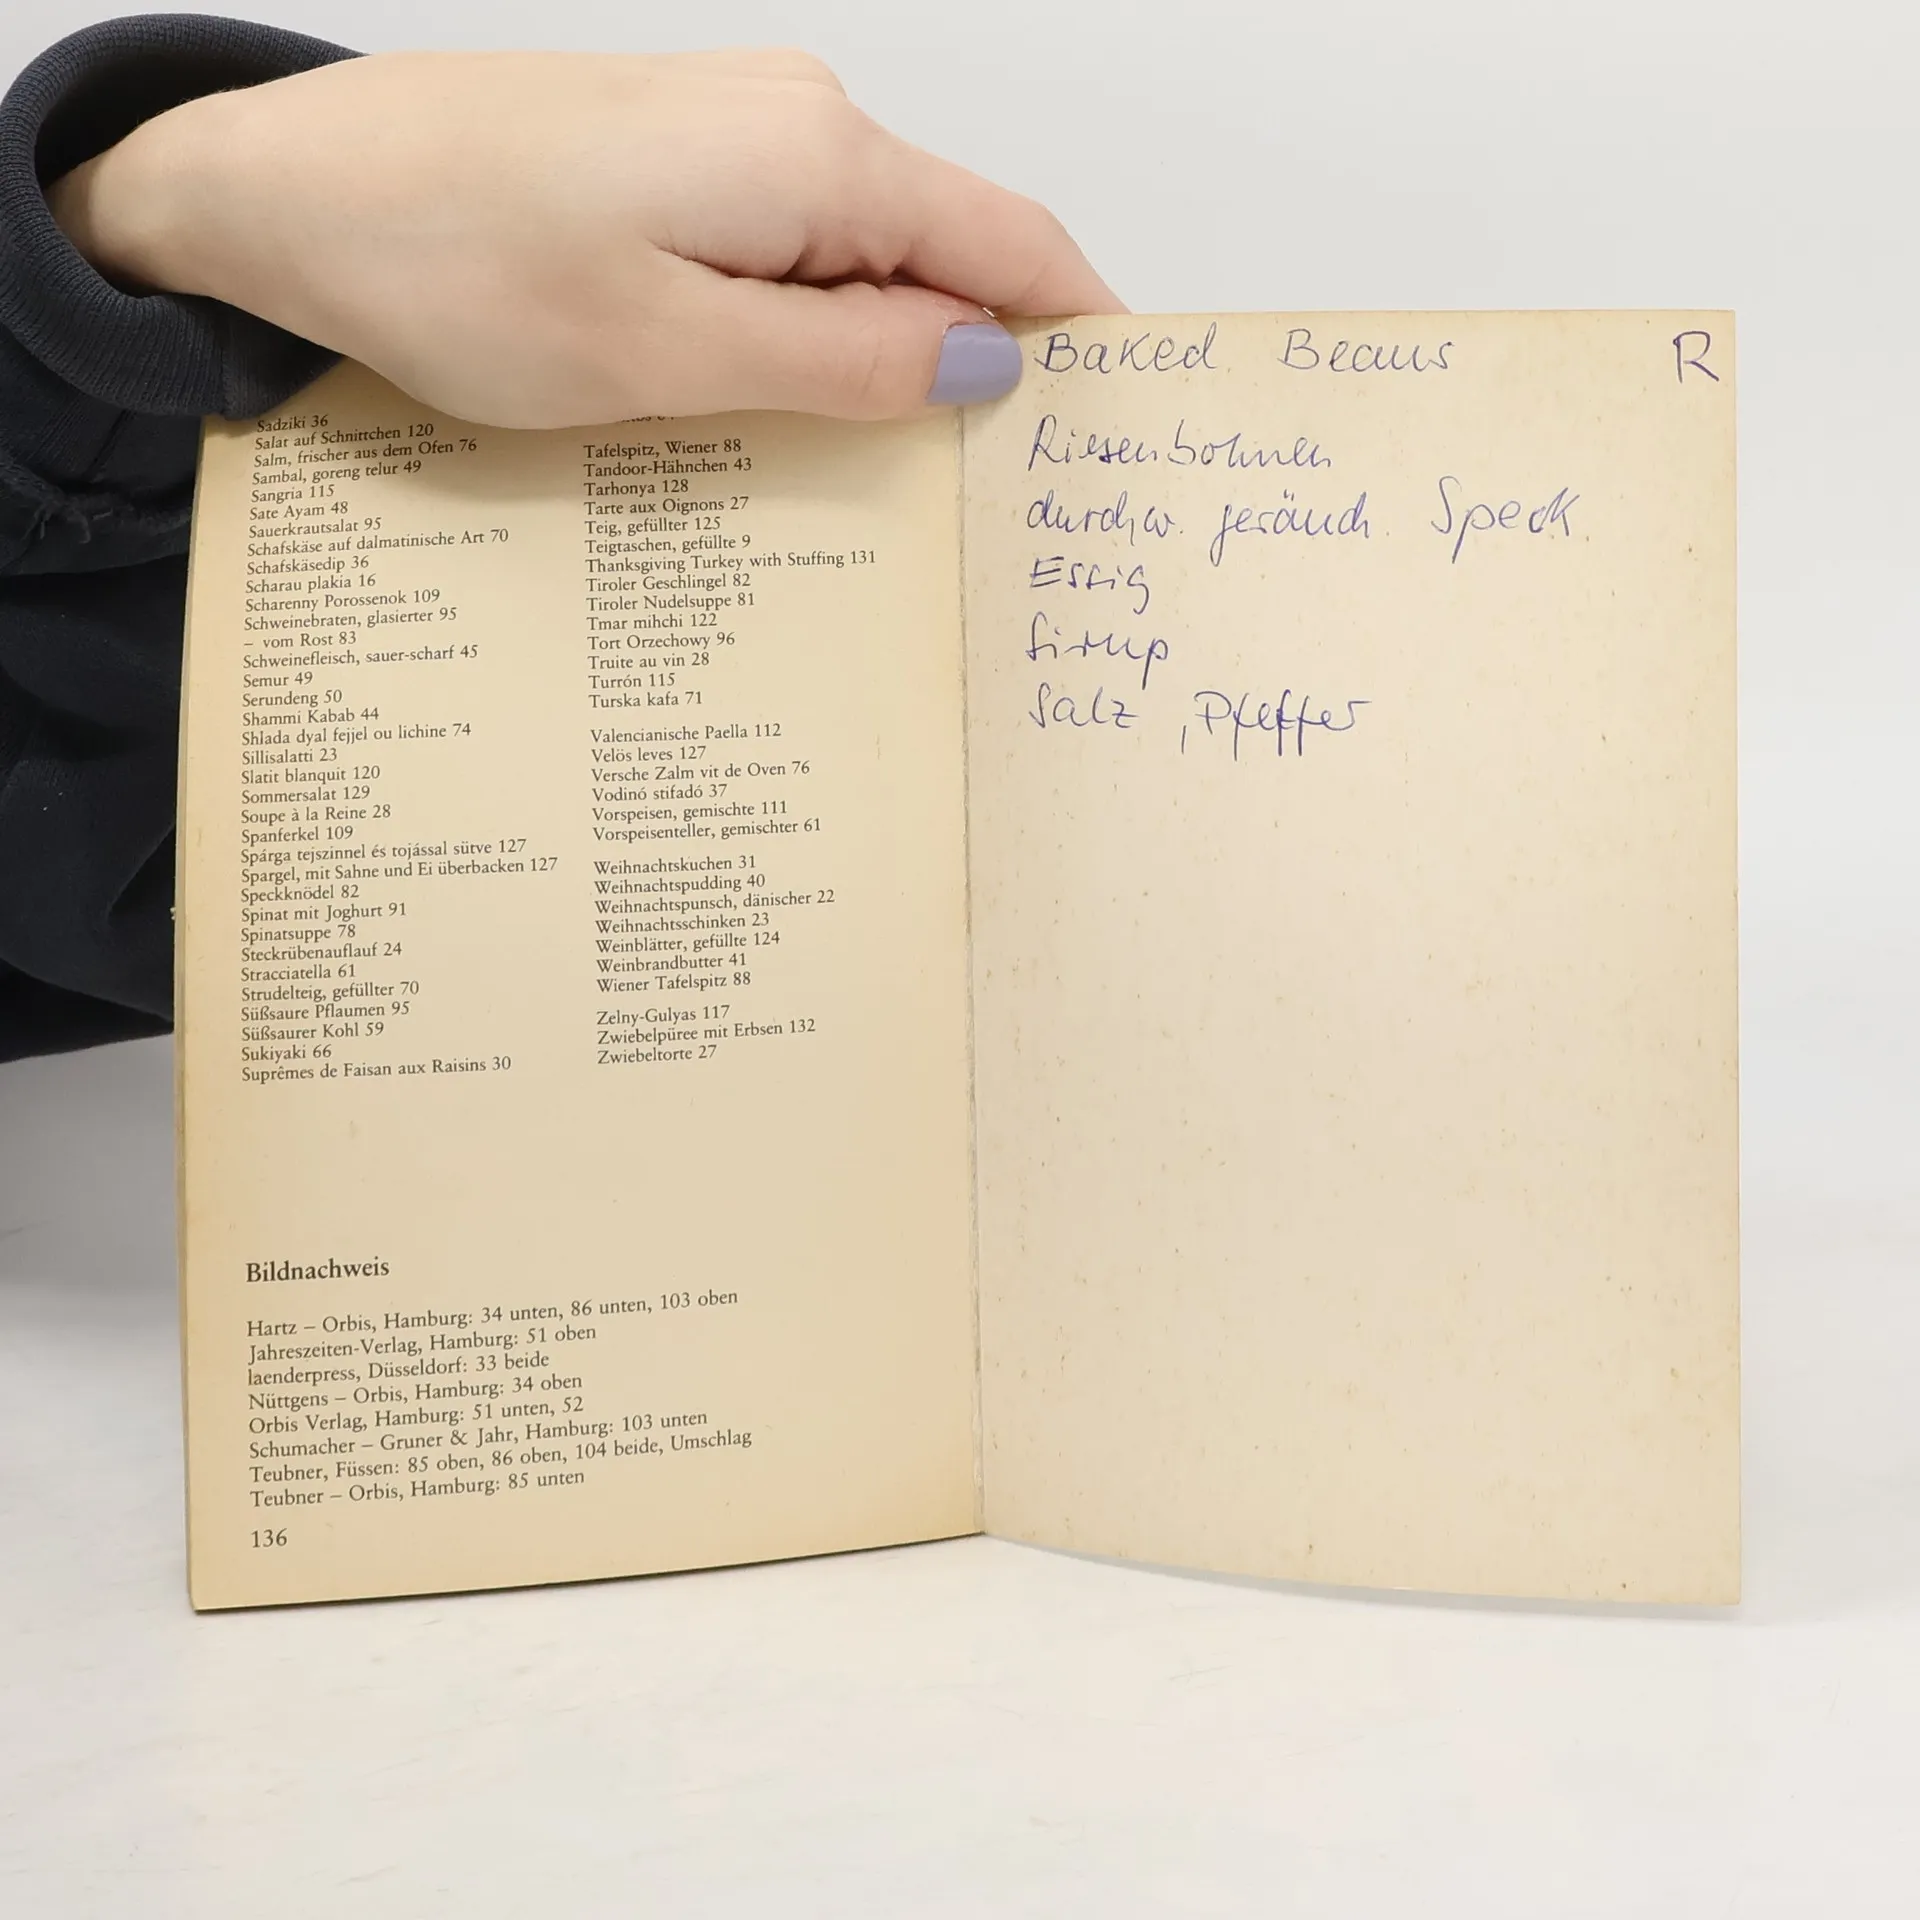 Sadziki 36
Salat auf Schnittchen 120
Salm, frischer aus dem Ofen 76
Sambal, goreng telur 49
Sangria 115
Sate Ayam 48
Sauerkrautsalat 95
Schafskäse auf dalmatinische Art 70
Schafskäsedip 36
Scharau plakia 16
Scharenny Porossenok 109
Schweinebraten, glasierter 95
– vom Rost 83
Schweinefleisch, sauer-scharf 45
Semur 49
Serundeng 50
Shammi Kabab 44
Shlada dyal fejjel ou lichine 74
Sillisalatti 23
Slatit blanquit 120
Sommersalat 129
Soupe à la Reine 28
Spanferkel 109
Spárga tejszinnel és tojással sütve 127
Spargel, mit Sahne und Ei überbacken 127
Speckknödel 82
Spinat mit Joghurt 91
Spinatsuppe 78
Steckrübenauflauf 24
Stracciatella 61
Strudelteig, gefüllter 70
Süßsaure Pflaumen 95
Süßsaurer Kohl 59
Sukiyaki 66
Suprêmes de Faisan aux Raisins 30
Tafelspitz, Wiener 88
Tandoor-Hähnchen 43
Tarhonya 128
Tarte aux Oignons 27
Teig, gefüllter 125
Teigtaschen, gefüllte 9
Thanksgiving Turkey with Stuffing 131
Tiroler Geschlingel 82
Tiroler Nudelsuppe 81
Tmar mihchi 122
Tort Orzechowy 96
Truite au vin 28
Turrón 115
Turska kafa 71
Valencianische Paella 112
Velös leves 127
Versche Zalm vit de Oven 76
Vodinó stifadó 37
Vorspeisen, gemischte 111
Vorspeisenteller, gemischter 61
Weihnachtskuchen 31
Weihnachtspudding 40
Weihnachtspunsch, dänischer 22
Weihnachtsschinken 23
Weinblätter, gefüllte 124
Weinbrandbutter 41
Wiener Tafelspitz 88
Zelny-Gulyas 117
Zwiebelpüree mit Erbsen 132
Zwiebeltorte 27
Bildnachweis
Hartz – Orbis, Hamburg: 34 unten, 86 unten, 103 oben
Jahreszeiten-Verlag, Hamburg: 51 oben
laenderpress, Düsseldorf: 33 beide
Nüttgens – Orbis, Hamburg: 34 oben
Orbis Verlag, Hamburg: 51 unten, 52
Schumacher – Gruner & Jahr, Hamburg: 103 unten
Teubner, Füssen: 85 oben, 86 oben, 104 beide, Umschlag
Teubner – Orbis, Hamburg: 85 unten
136
Baked Beans R
Riesenbohnen
durchw. geräuch. Speck
Essig
Sirup
Salz, Pfeffer